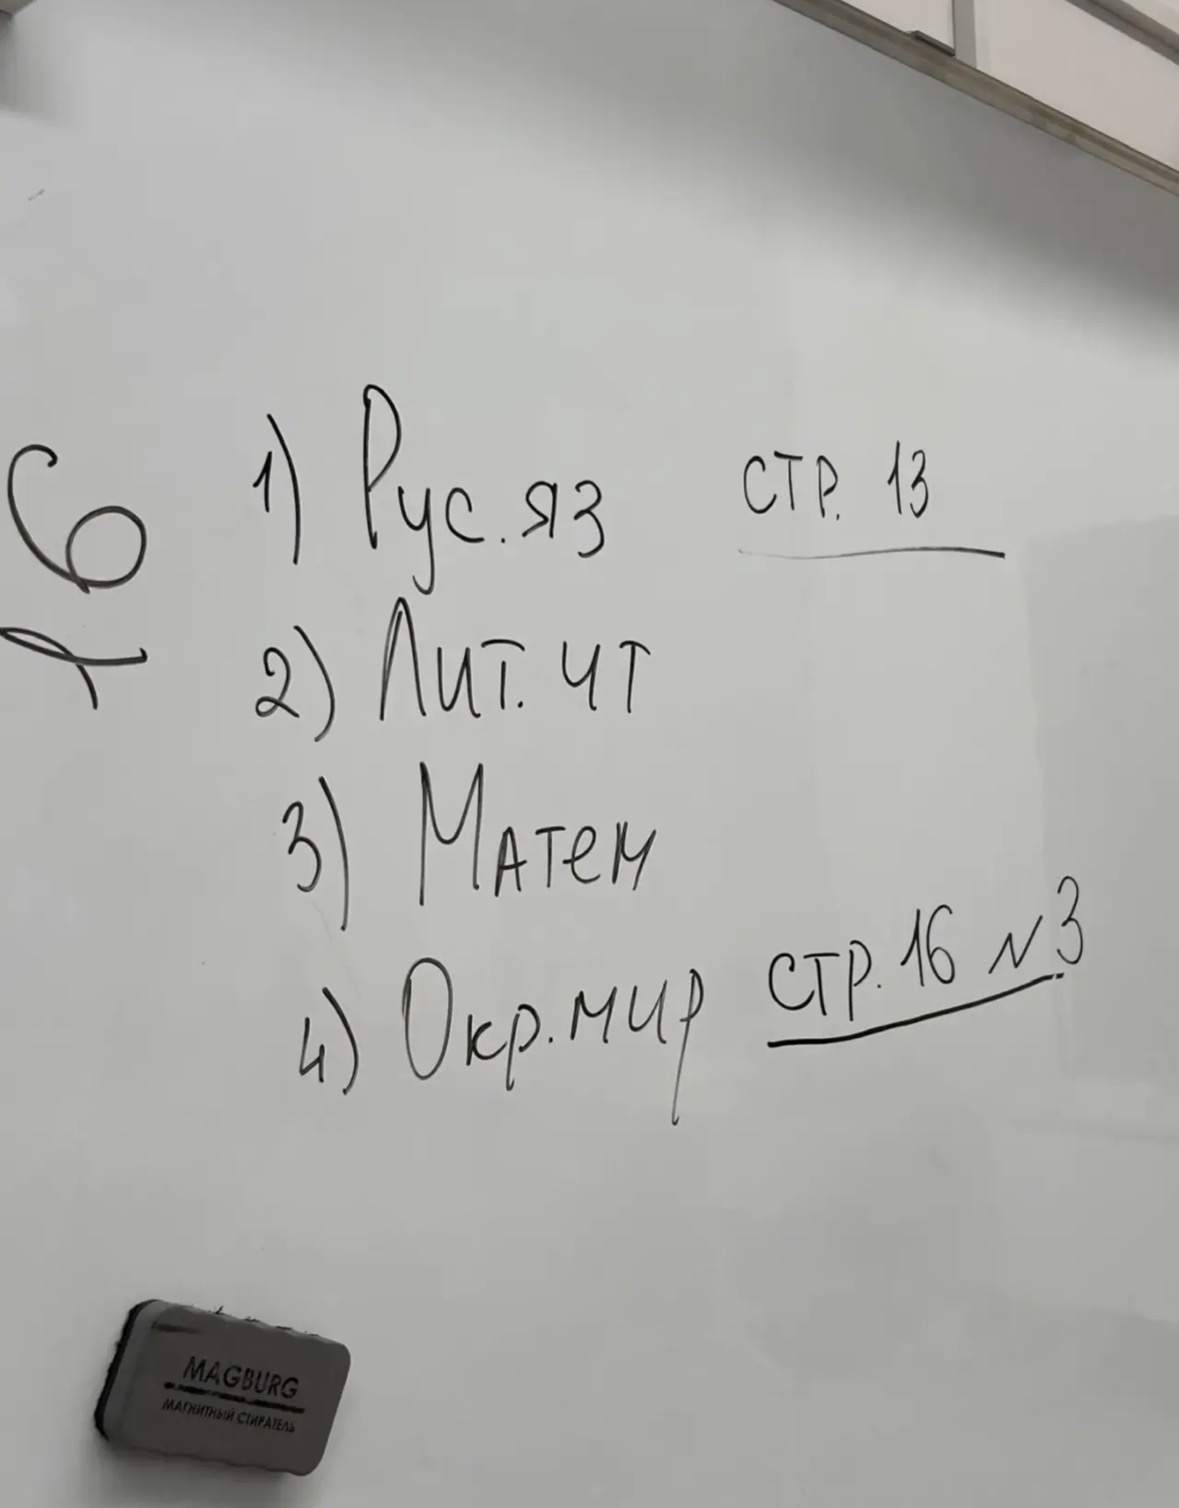 16
1) Рус. яз стр. 13
2) Лит. чт
3) Матем
4) Окр. мир стр. 16 N3
MAGBURG
МАГНИТНЫЙ СТИРАТЕЛЬ